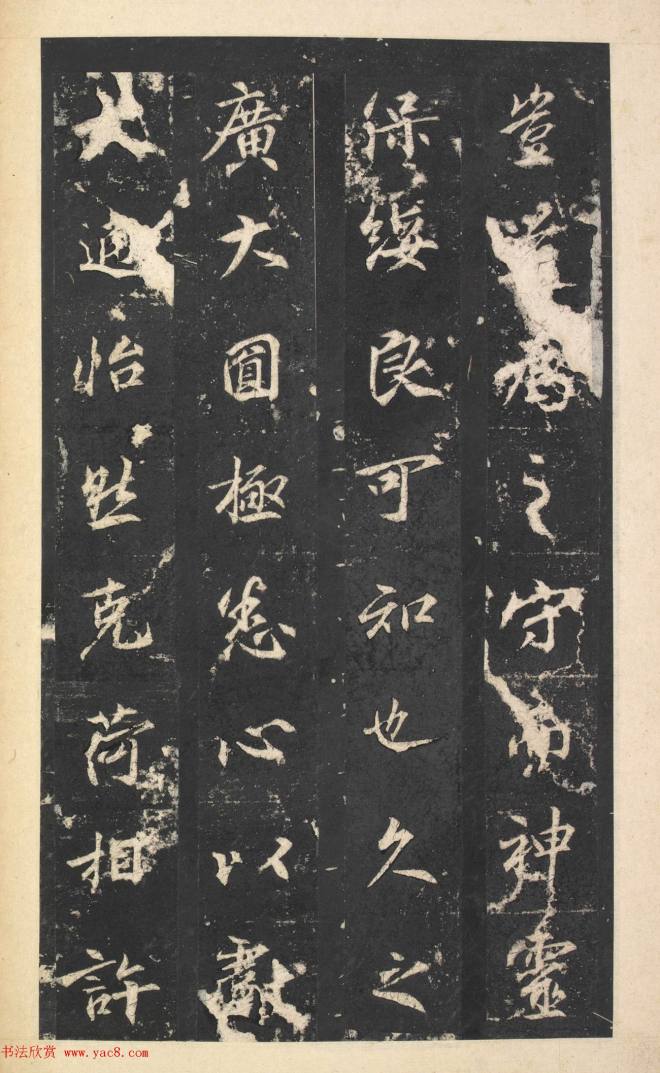 豈
為之守而神靈
保綏良可知也久之
廣大圓極悉心以獻
大通怡然克荷相許
书法欣赏 www.yac8.com